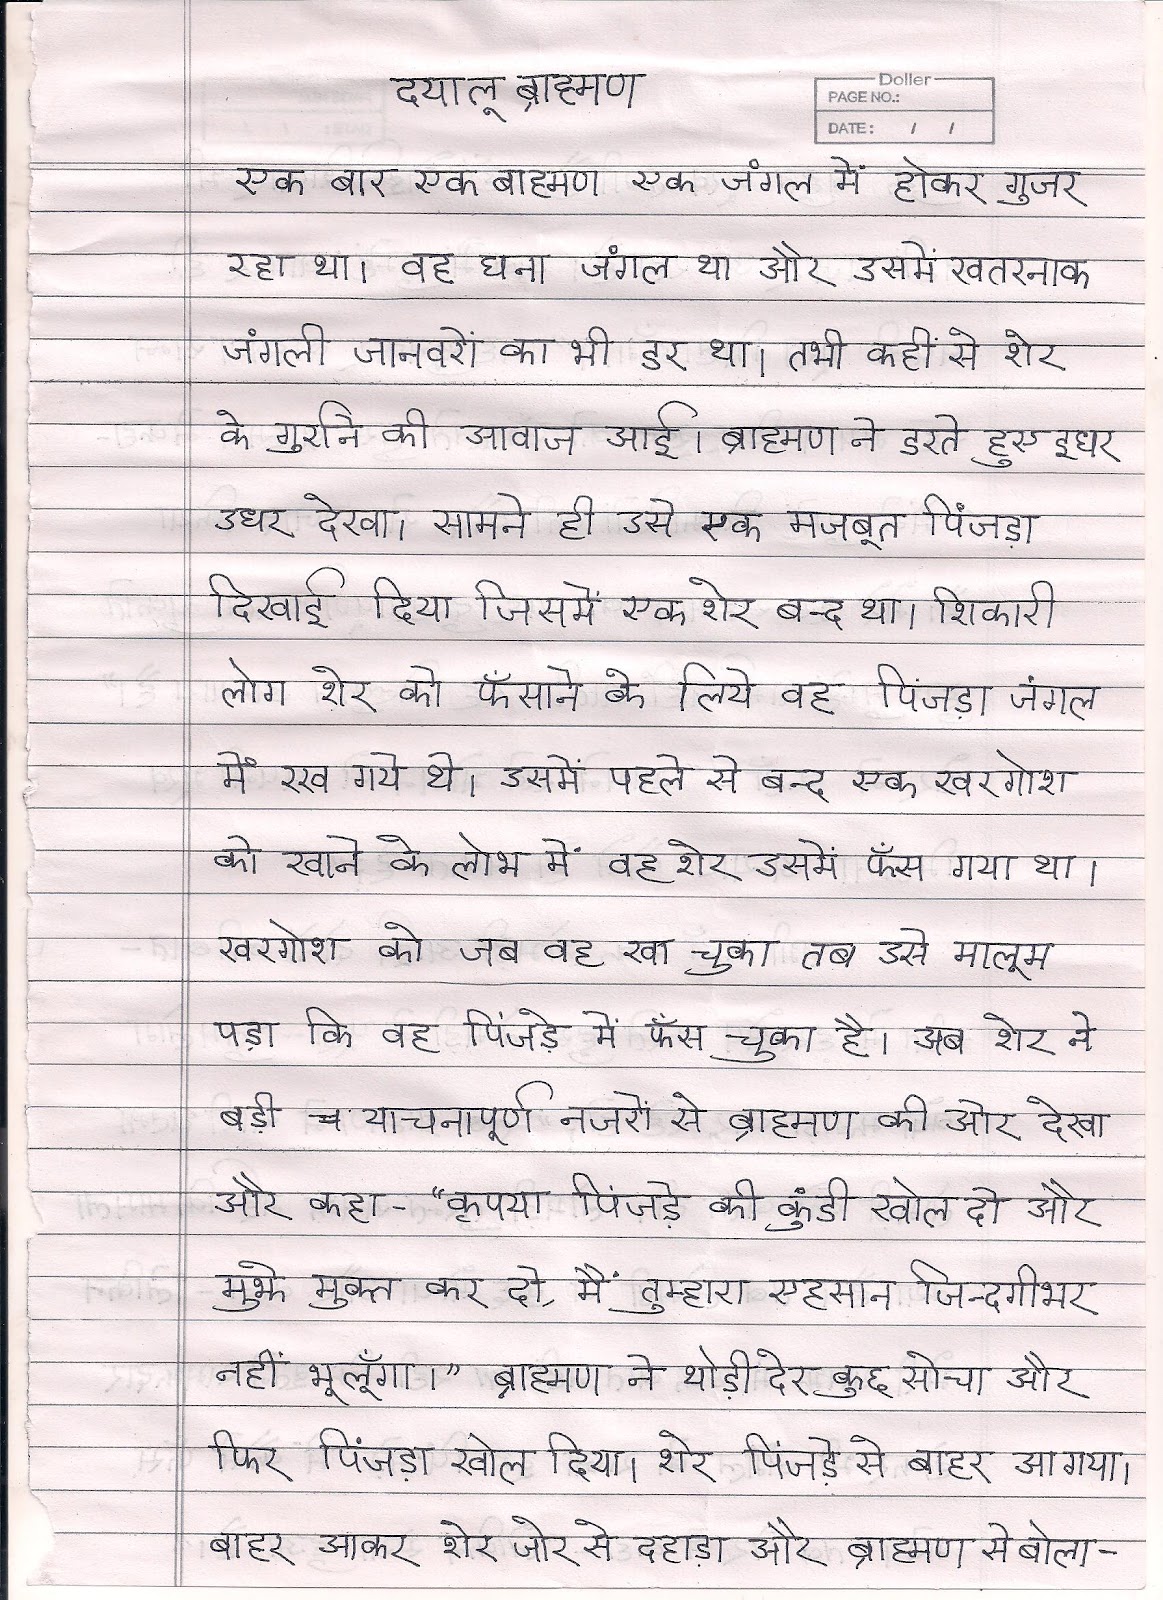 दयालू ब्राह्मण
Doller
PAGE NO.:
DATE: / /
एक बार एक बाह्मण एक जंगल में होकर गुजर
रहा था। वह घना जंगल था और उसमें खतरनाक
जंगली जानवरों का भी डर था। तभी कहीं से शेर
के गुर्राने की आवाज आई। ब्राह्मण ने डरते हुए इधर
उधर देखा। सामने ही उसे एक मजबूत पिंजड़ा
दिखाई दिया जिसमें एक शेर बन्द था। शिकारी
लोग शेर को फँसाने के लिये वह पिंजड़ा जंगल
में रख गये थे। उसमें पहले से बन्द एक खरगोश
को खाने के लोभ में वह शेर उसमें फँस गया था।
खरगोश को जब वह खा चुका तब उसे मालूम
पड़ा कि वह पिंजड़े में फँस चुका है। अब शेर ने
बड़ी याचनापूर्ण नजरों से ब्राह्मण की ओर देखा
और कहा- "कृपया पिंजड़े की कुंडी खोल दो और
मुझे मुक्त कर दो, मैं तुम्हारा एहसान जिन्दगीभर
नहीं भूलूँगा।" ब्राह्मण ने थोड़ी देर कुछ सोचा और
फिर पिंजड़ा खोल दिया। शेर पिंजड़े से बाहर आ गया।
बाहर आकर शेर जोर से दहाड़ा और ब्राह्मण से बोला-